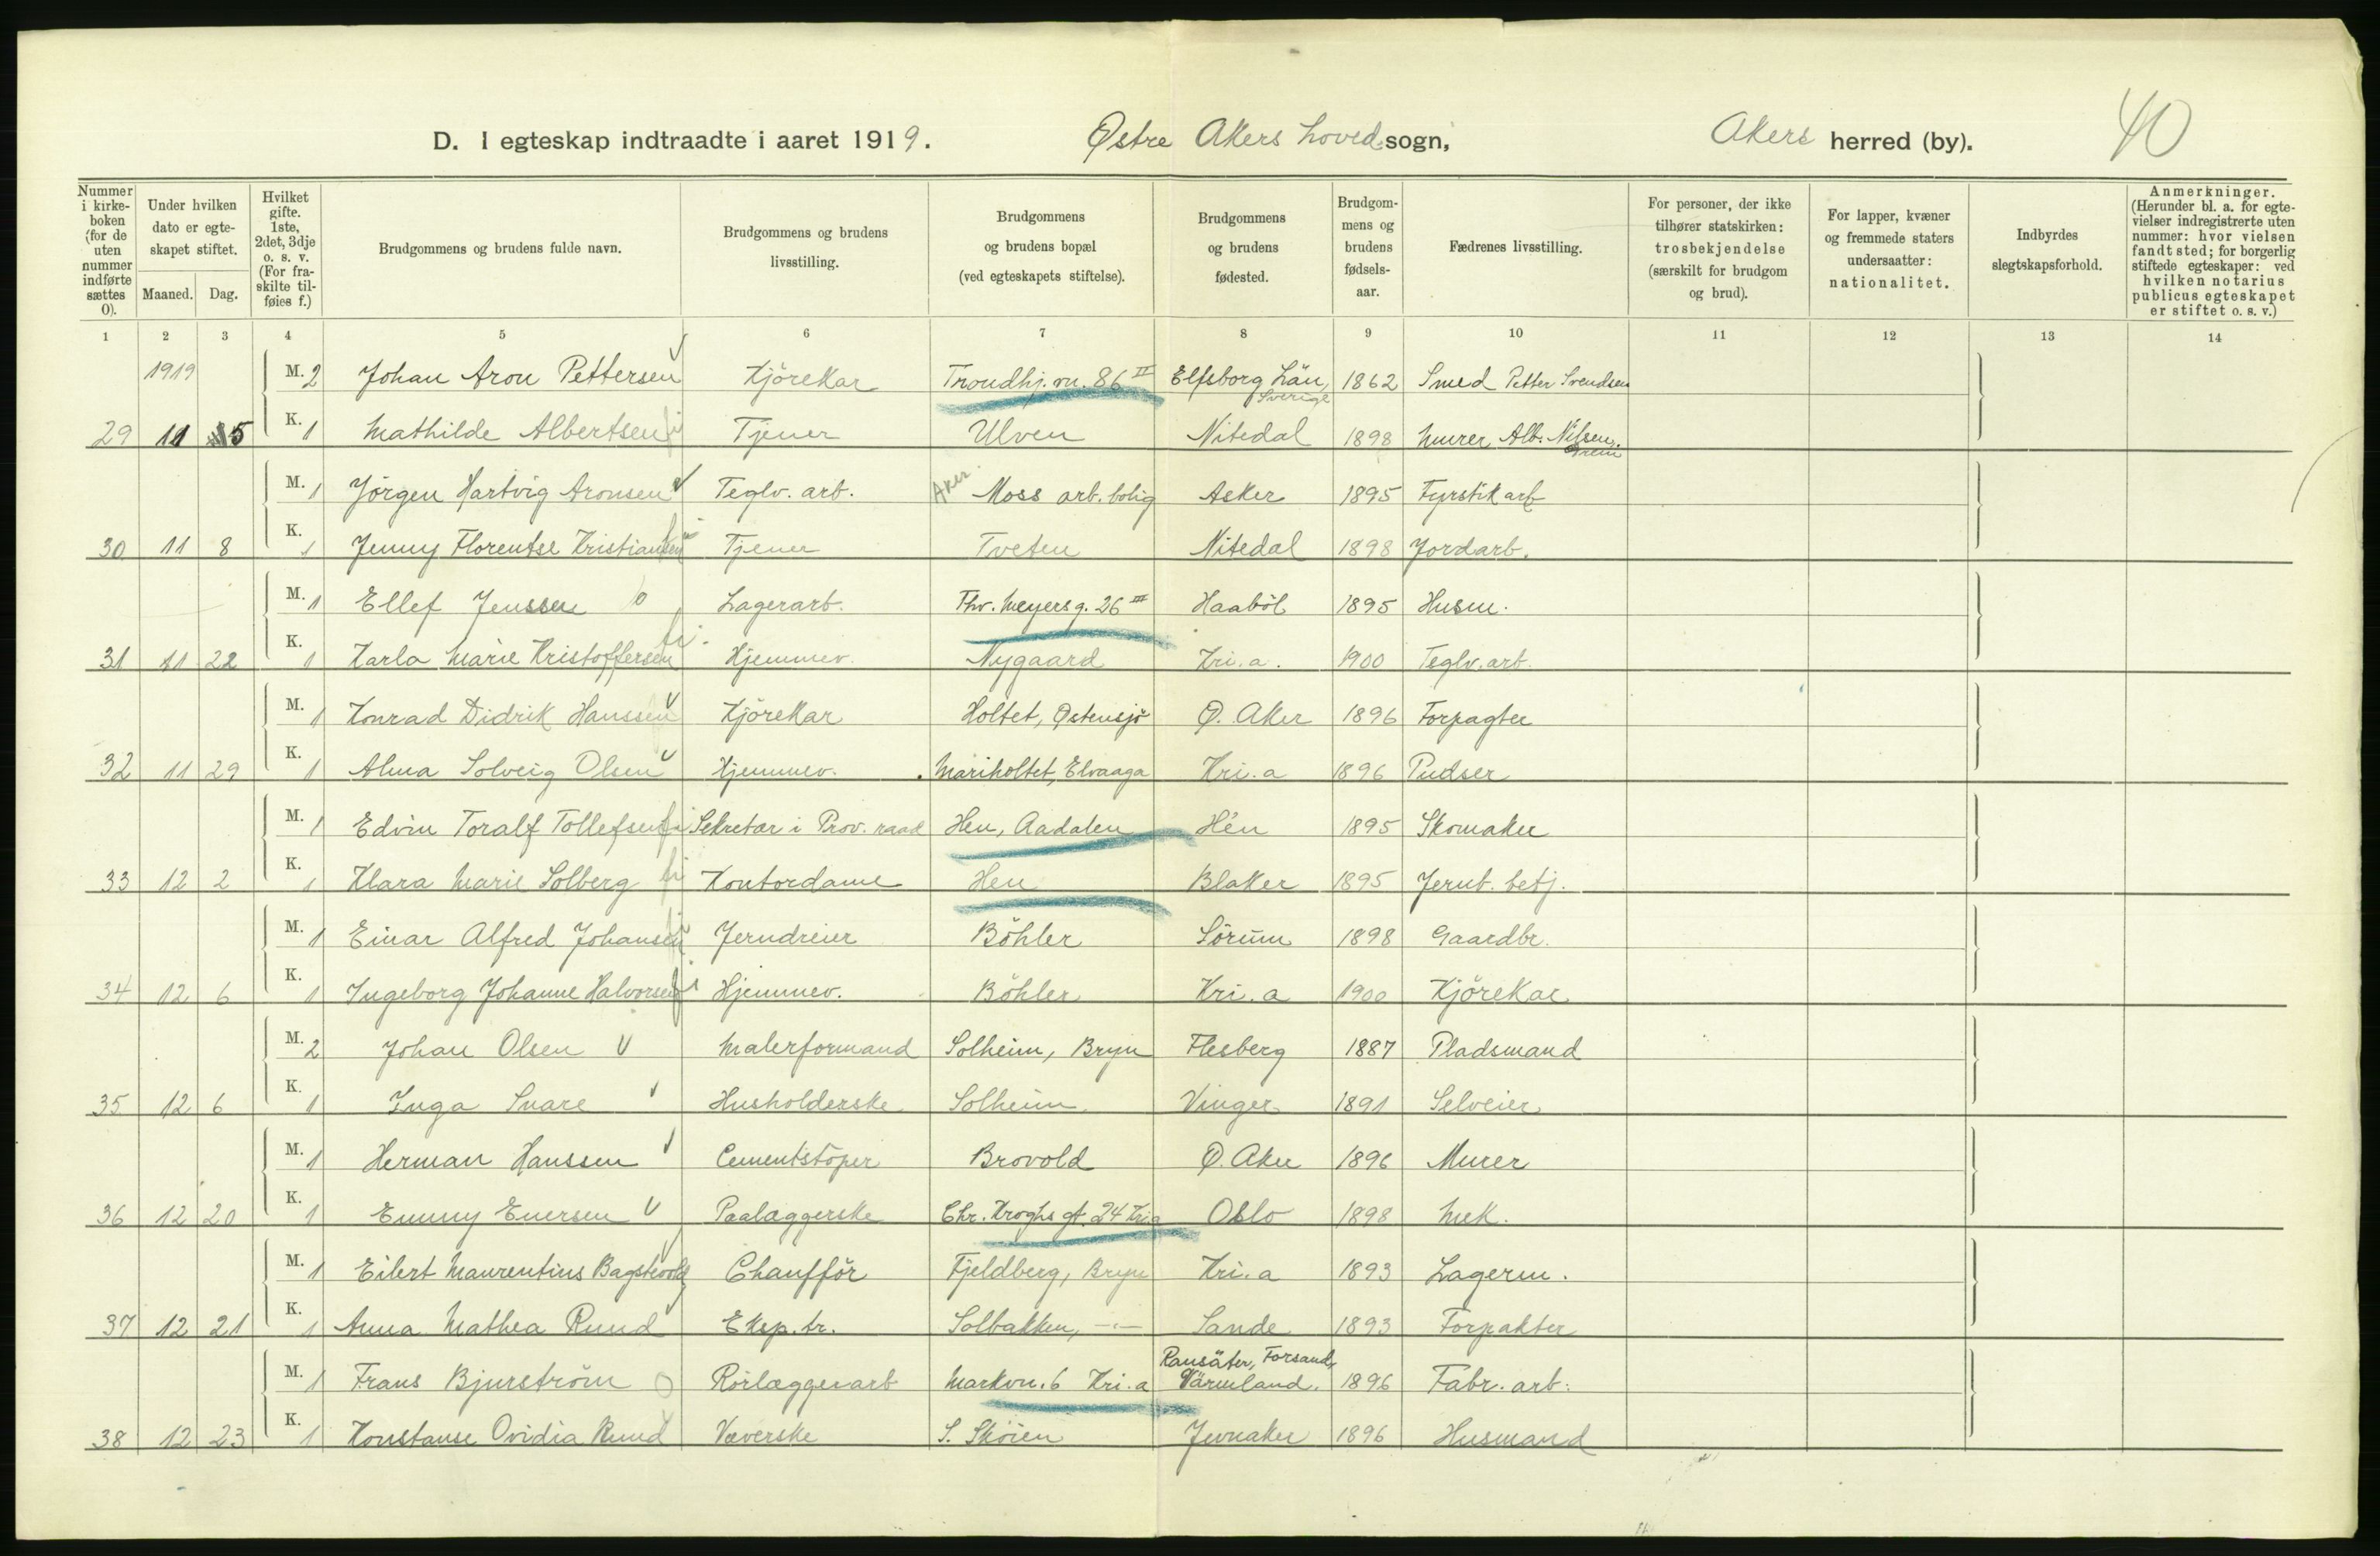 D. I egteskap indtraadte i aaret 1919. Østre Akers hovedsogn, Akers herred (by). 40
Nummer i kirkeboken (for de uten nummer indførte sættes 0).
Under hvilken dato er egteskapet stiftet.
Maaned. Dag.
Hvilket gifte. 1ste, 2det, 3dje o. s. v. (For fraskilte tilføies f.)
Brudgommens og brudens fulde navn.
Brudgommens og brudens livsstilling.
Brudgommens og brudens bopæl (ved egteskapets stiftelse).
Brudgommens og brudens fødested.
Brudgommens og brudens fødselsaar.
Fædrenes livsstilling.
For personer, der ikke tilhører statskirken: trosbekjendelse (særskilt for brudgom og brud).
For lapper, kvæner og fremmede staters undersaatter: nationalitet.
Indbyrdes slegtskapsforhold.
Anmerkninger. (Herunder bl. a. for egtevielser indregistrerte uten nummer: hvor vielsen fandt sted; for borgerlig stiftede egteskaper: ved hvilken notarius publicus egteskapet er stiftet o. s. v.)
1 2 3 4 5 6 7 8 9 10 11 12 13 14
1919 M. 2 Johan Aron Pettersen Kjörekar Trondhj.vn. 86 II Elfsborg Län, Sverige 1862 Smed Petter Svendsen
29 11 5 K. 1 Mathilde Albertsen Tjener Ulven Nitedal 1898 Murer Alb. Nilsen
M. 1 Jörgen Hartvig Aronsen Teglv. arb. Aker Moss arb. bolig Asker 1895 Fyrstikarb
30 11 8 K. 1 Jenny Florentse Kristiansen Tjener Tveten Nitedal 1898 Jordarb.
M. 1 Ellef Jenssen Lagerarb. Thv. Meyersg. 26 III Haaböl 1895 Husm.
31 11 22 K. 1 Karla Marie Kristoffersen Hjemmev. Nygaard Kri.a. 1900 Teglv.arb.
M. 1 Konrad Didrik Hanssen Kjörekar Holtet, Østensjö Ø. Aker 1896 Forpagter
32 11 29 K. 1 Alma Solveig Olsen Hjemmev. Mariholtet, Elvaaga Kri.a 1896 Pudser
M. 1 Edvin Toralf Tollefsen Sekretær i Prov. raad Hen, Aadalen Hen 1895 Skomaker
33 12 2 K. 1 Klara Marie Solberg Kontordame Hen Blaker 1895 Jernb. betj.
M. 1 Einar Alfred Johansen Jerndreier Böhler Sörum 1898 Gaardbr.
34 12 6 K. 1 Ingeborg Johanne Halvorsen Hjemmev. Böhler Kri.a 1900 Kjörekar
M. 2 Johan Olsen Malerformand Solheim, Bryn Flesberg 1887 Pladsmand
35 12 6 K. 1 Inga Snare Husholderske Solheim Vinger 1891 Selveier
M. 1 Herman Hanssen Cementstöper Brovold Ø. Aker 1896 Murer
36 12 20 K. 1 Emmy Enersen Paalæggerske Chr. Kroghs gt. 24 Kria Oslo 1898 Mek.
M. 1 Eilert Maurentius Chafför Fjeldberg, Bryn Kri.a 1893 Lagerm.
37 12 21 K. 1 Anna Mathea Ruud Eksp. tr. Solbakken, -"- Sande 1893 Forpakter
M. 1 Frans Bjurström Rörlæggerarb Markvn. 6 Kri.a Ransäter, Forsand, Värmland. 1896 Fabr. arb.
38 12 23 K. 1 Konstanse Ovidia Ruud Væverske S. Sköien Jevnaker 1896 Husmand